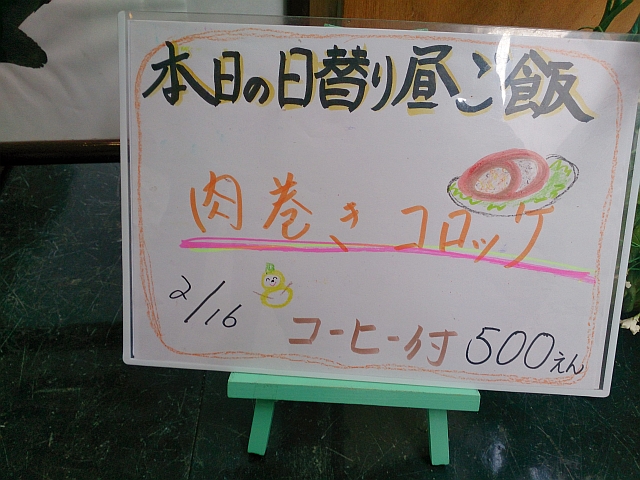 本日の日替り昼ご飯
肉巻きコロッケ
2/16
コーヒー付 500えん